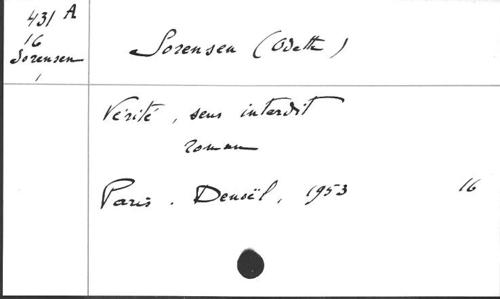 431 A
16
Sorensen
1
Sorensen (Odette)
Vérité, sens interdit
roman
Paris. Denoël, 1953 16